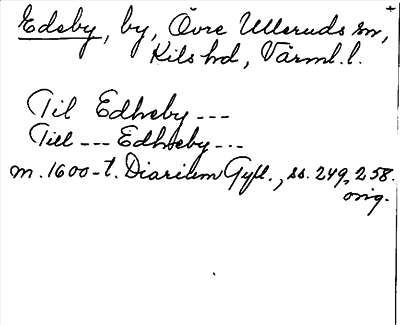 Edsby, by, Övre Ulleruds sn,
Kils hd, Värml. l.
Til Edhsby ---
Till --- Edhsby ---
m. 1600-t. Diarium Gyll., ss. 249, 258.
orig.